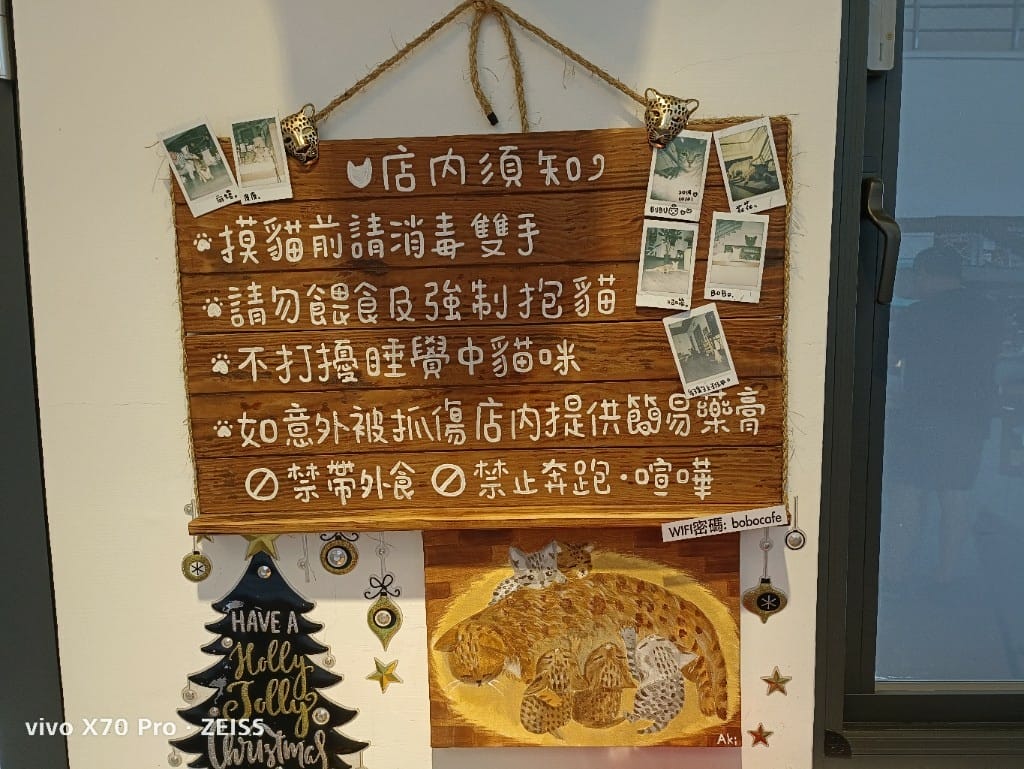 店内須知
摸貓前請消毒雙手
請勿餵食及強制抱貓
不打擾睡覺中貓咪
如意外被抓傷店内提供簡易藥膏
禁帶外食 禁止奔跑·喧嘩
WIFI密碼: bobocafe
HAVE A
Holly
Jolly
Christmas
Aki
BoBo.
vivo X70 Pro · ZEISS